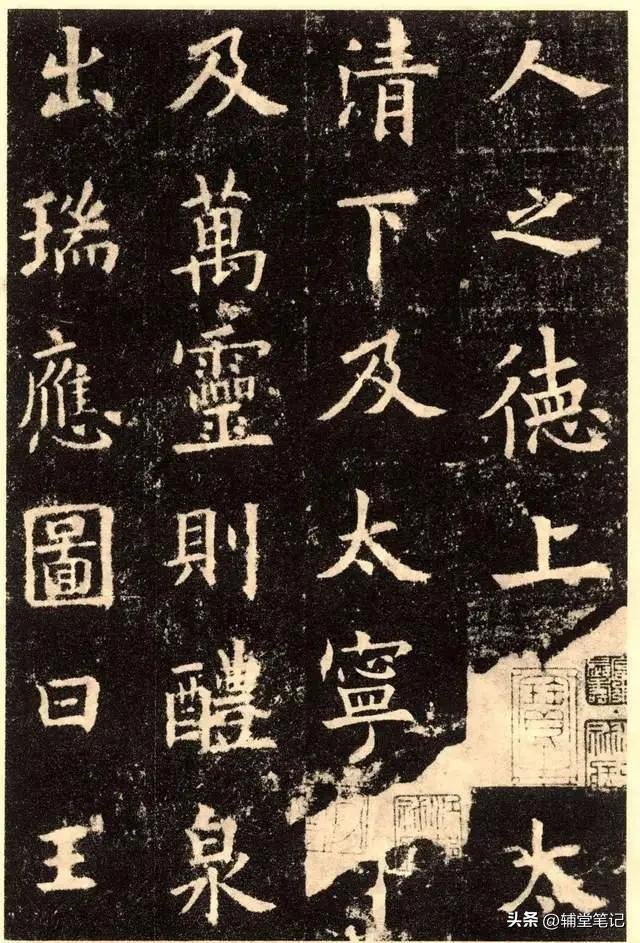 人之德上太
清下及太寧
及萬靈則醴泉
出瑞應圖曰王
头条 @辅堂笔记